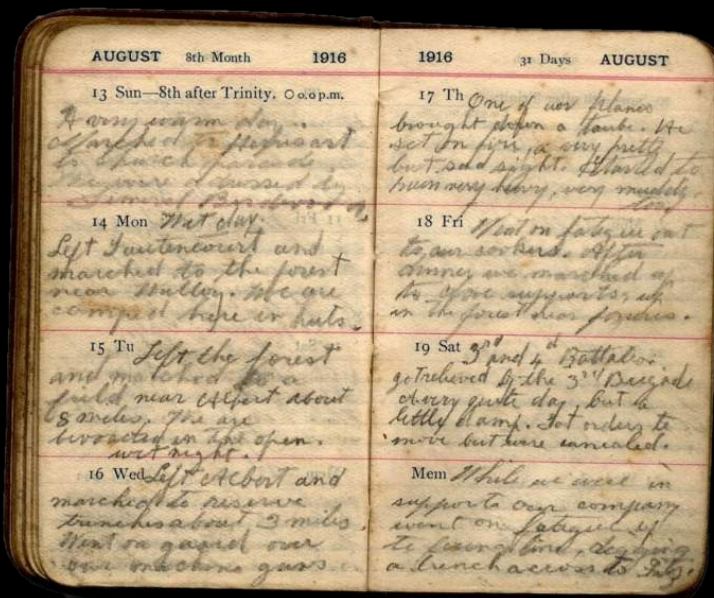 AUGUST 8th Month 1916
13 Sun—8th after Trinity. ○ 0.0 p.m.
A very warm day.
Marched to
to church parade
We were addressed by
General Birdwood
14 Mon Wet day.
Left and
marched to the forest
near We are
camped here in huts.
15 Tu Left the forest
and marched to a
field near Albert about
8 miles. We are
in the open.
wet night.
16 Wed Left Albert and
marched to reserve
trenches about 3 miles.
Went on guard over
our machine guns
1916 31 Days AUGUST
17 Th One of our planes
brought down a taube. He
set on fire, a very pretty
but sad sight. Started to
very heavy, very muddy
18 Fri Went on fatigue out
to our After
dinner we marched up
to supports, up
in the forest near
19 Sat 3rd and 4th Battalion
got relieved by the 3rd Brigade
a very quite day, but a
little damp. Got orders to
move but were cancelled.
Mem While we were in
supports our company
went on fatigue up
to firing line, digging
a trench across to